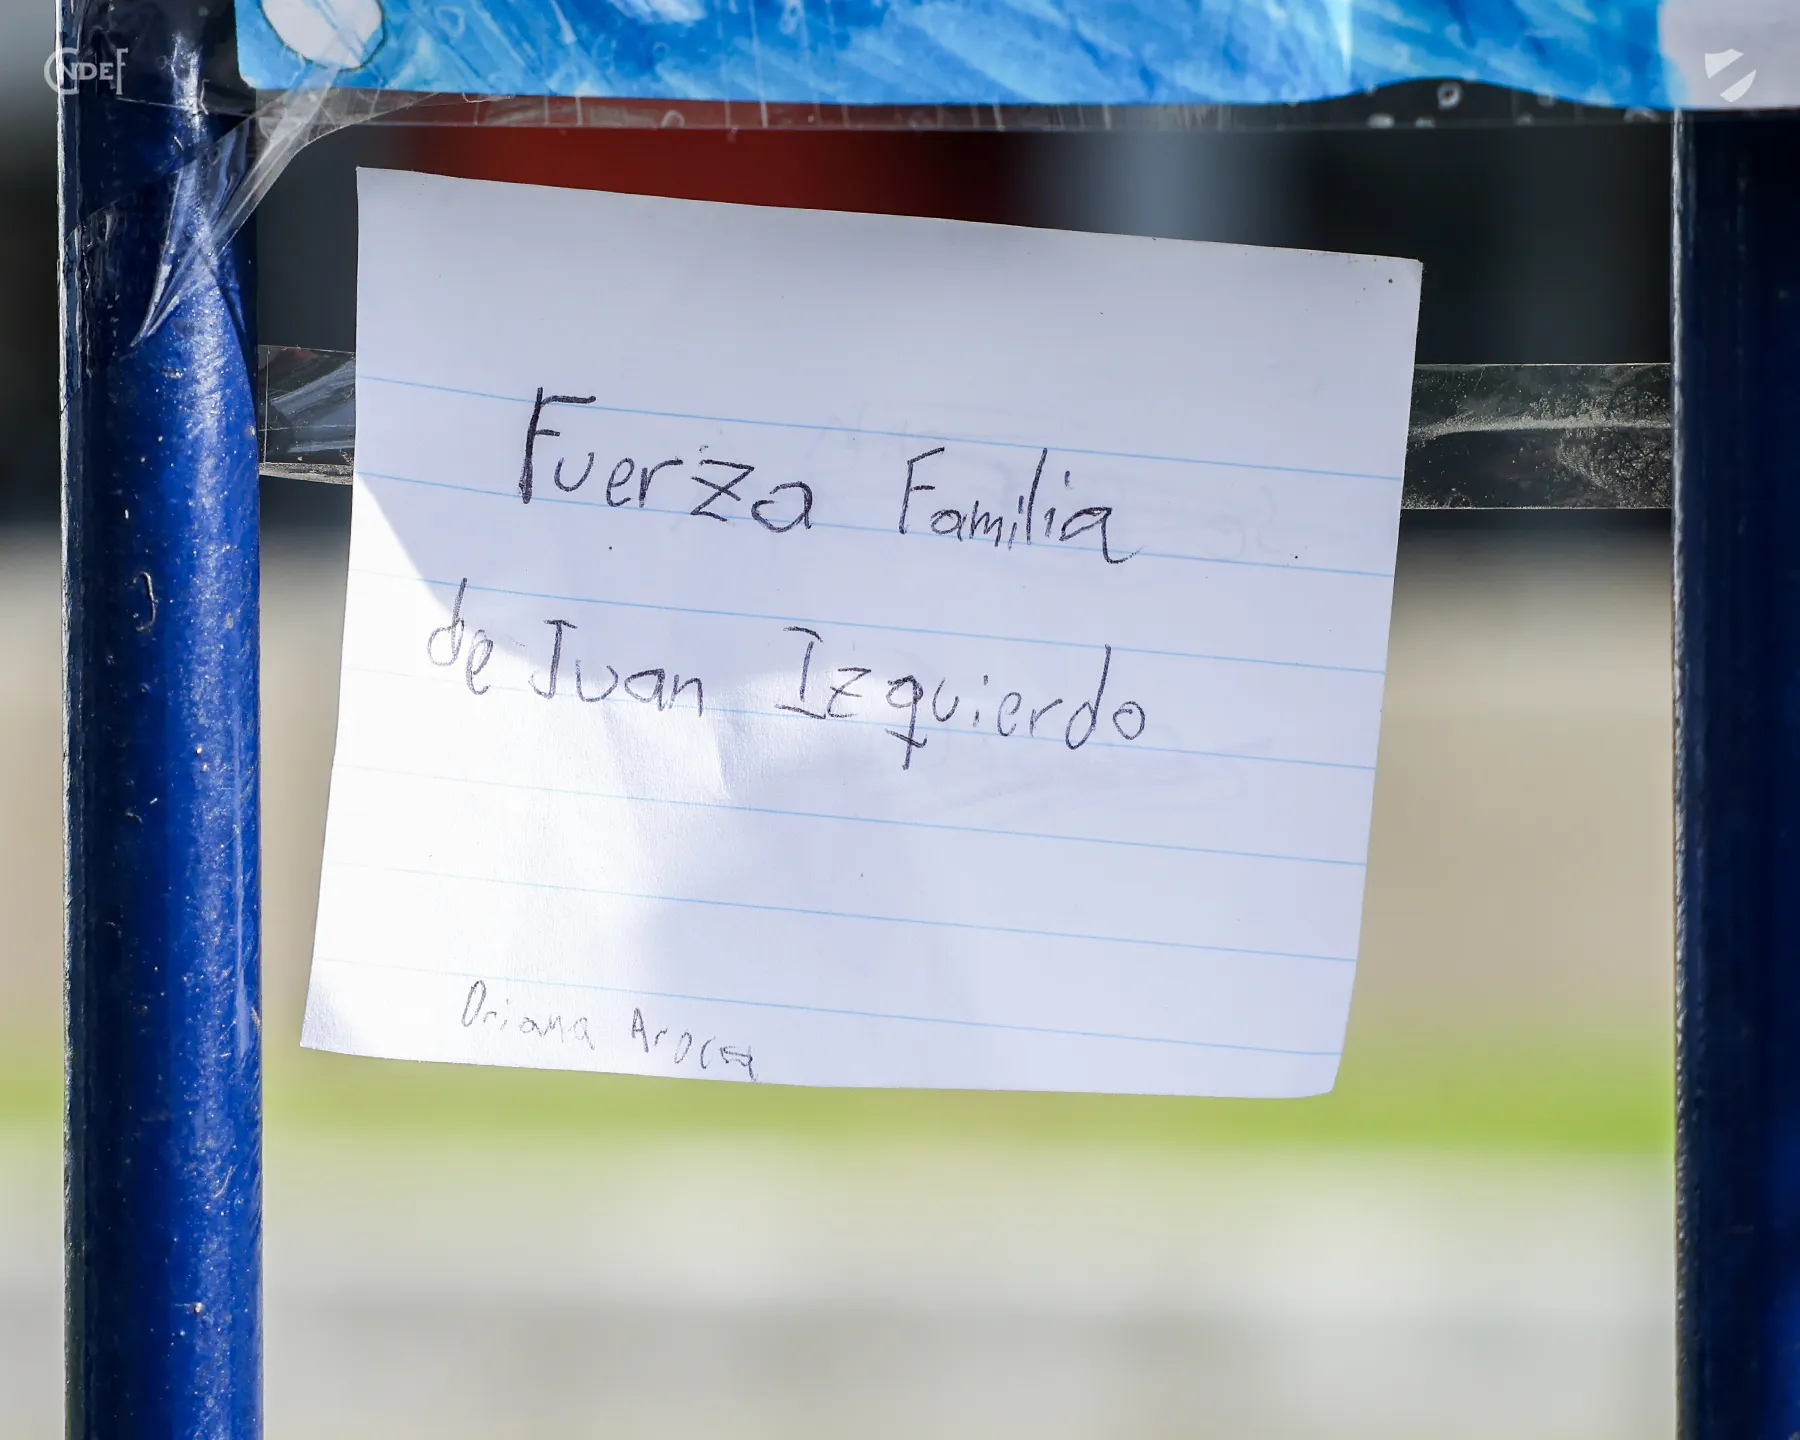 GNDEF
Fuerza Familia
de Juan Izquierdo
Oriana